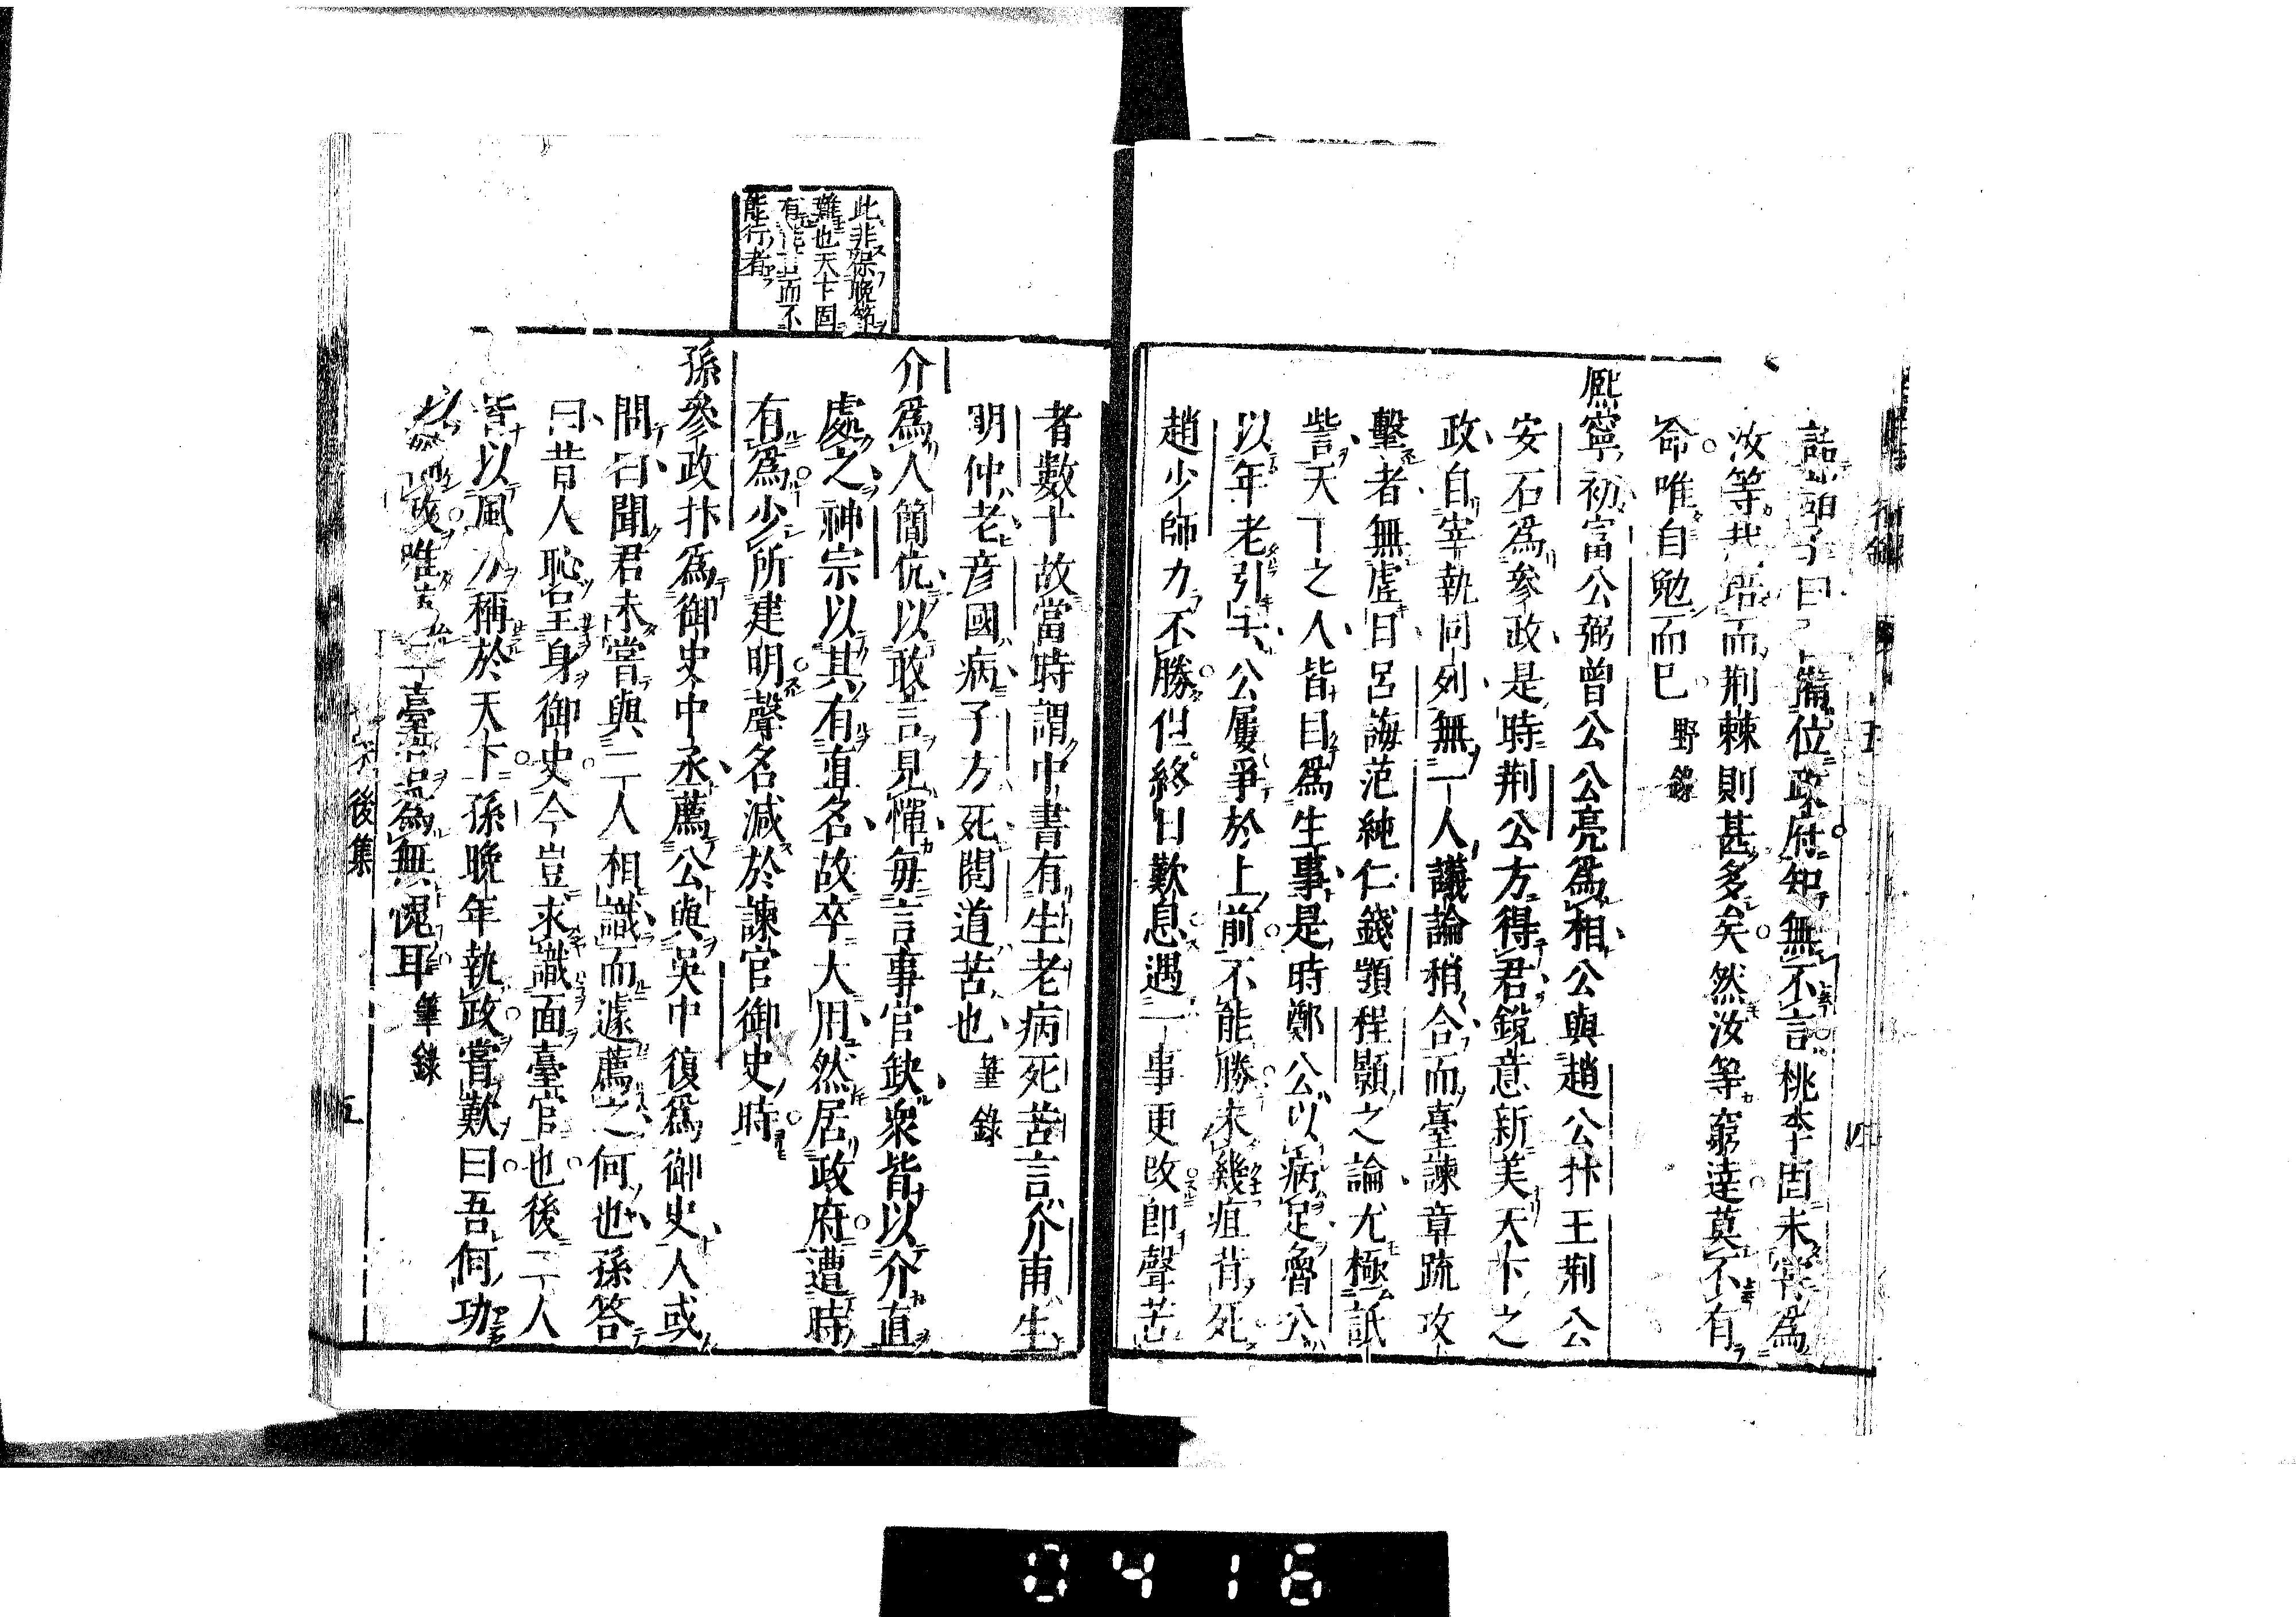 語諸子曰 備位政府知無不言桃李固未嘗爲
汝等栽培而荊棘則甚多矣然汝等窮達莫不有
命唯自勉而已 野錄
熈寧初富公弼曾公公亮爲相公與趙公抃王荆公
安石爲參政是時荆公方得君銳意新美天下之
政自宰執同列無一人議論稍合而臺諫章疏攻
擊者無虗日呂誨范純仁錢顗程顥之論尤極詆
訾天下之人皆目爲生事是時鄭公以病足魯公
以年老引去公屢爭於上前不能勝未幾疽背死
趙少師力不勝但終日歎息遇一事更改卽聲苦
者數十故當時謂中書有生老病死苦言介甫生
明仲老彦國病子方死閱道苦也 筆錄
介爲人簡伉以敢言見憚每言事官缺衆皆以介直
處之神宗以其有直名故卒大用然居政府遭時
有爲少所建明聲名減於諫官御史時
孫參政抃爲御史中丞薦公與吳中復爲御史人或
問曰聞君未嘗與二人相識而遽薦之何也孫答
曰昔人恥呈身御史今豈求識面臺官也後二人
皆以風力稱於天下孫晚年執政嘗歎曰吾何功
以 政唯 二臺官爲無愧耳 筆錄
此非保晚節
難也天下固
有能言而不
能行者
後集
五
0416